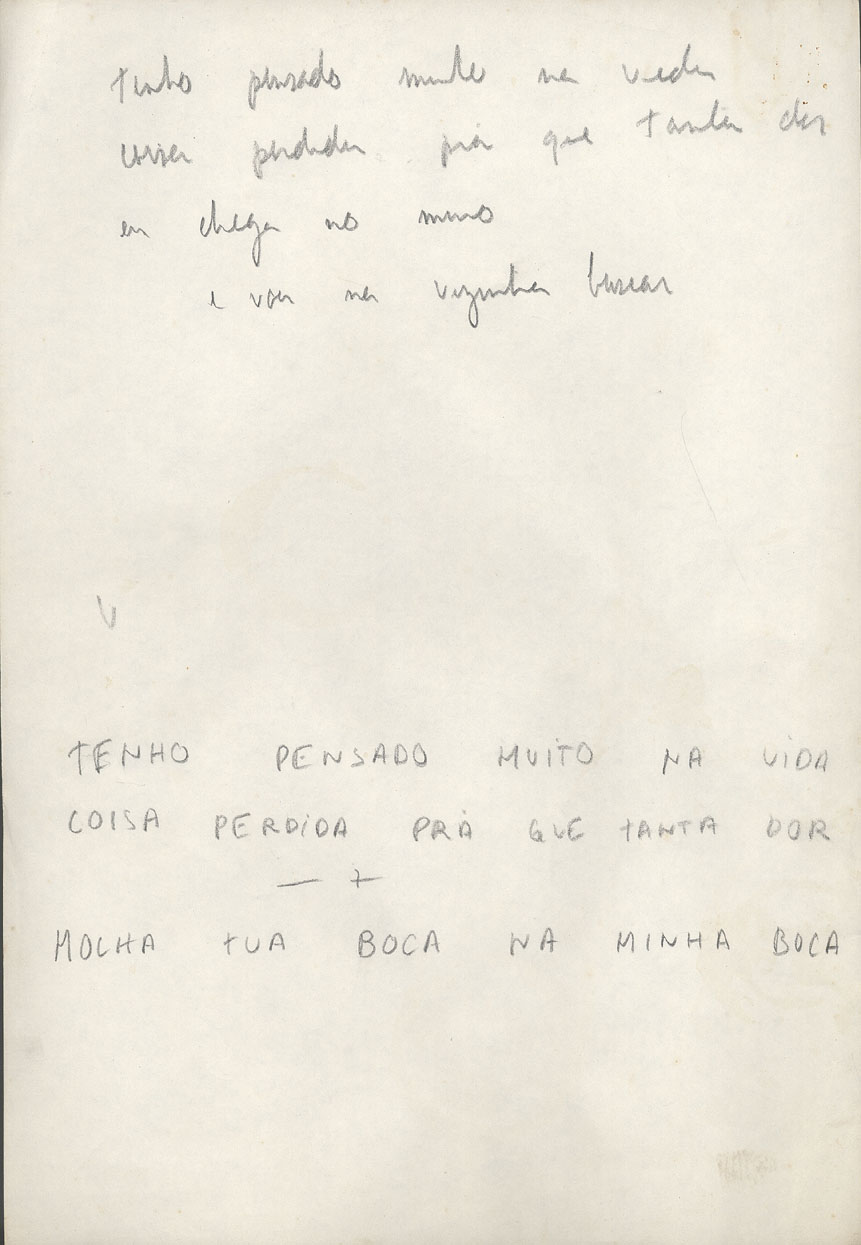 tenho pensado muito na vida
coisa perdida prá que tanta dor
eu chego no muro
e vou na vizinha buscar
V
TENHO PENSADO MUITO NA VIDA
COISA PERDIDA PRÁ QUE TANTA DOR
— +
MOLHA TUA BOCA NA MINHA BOCA